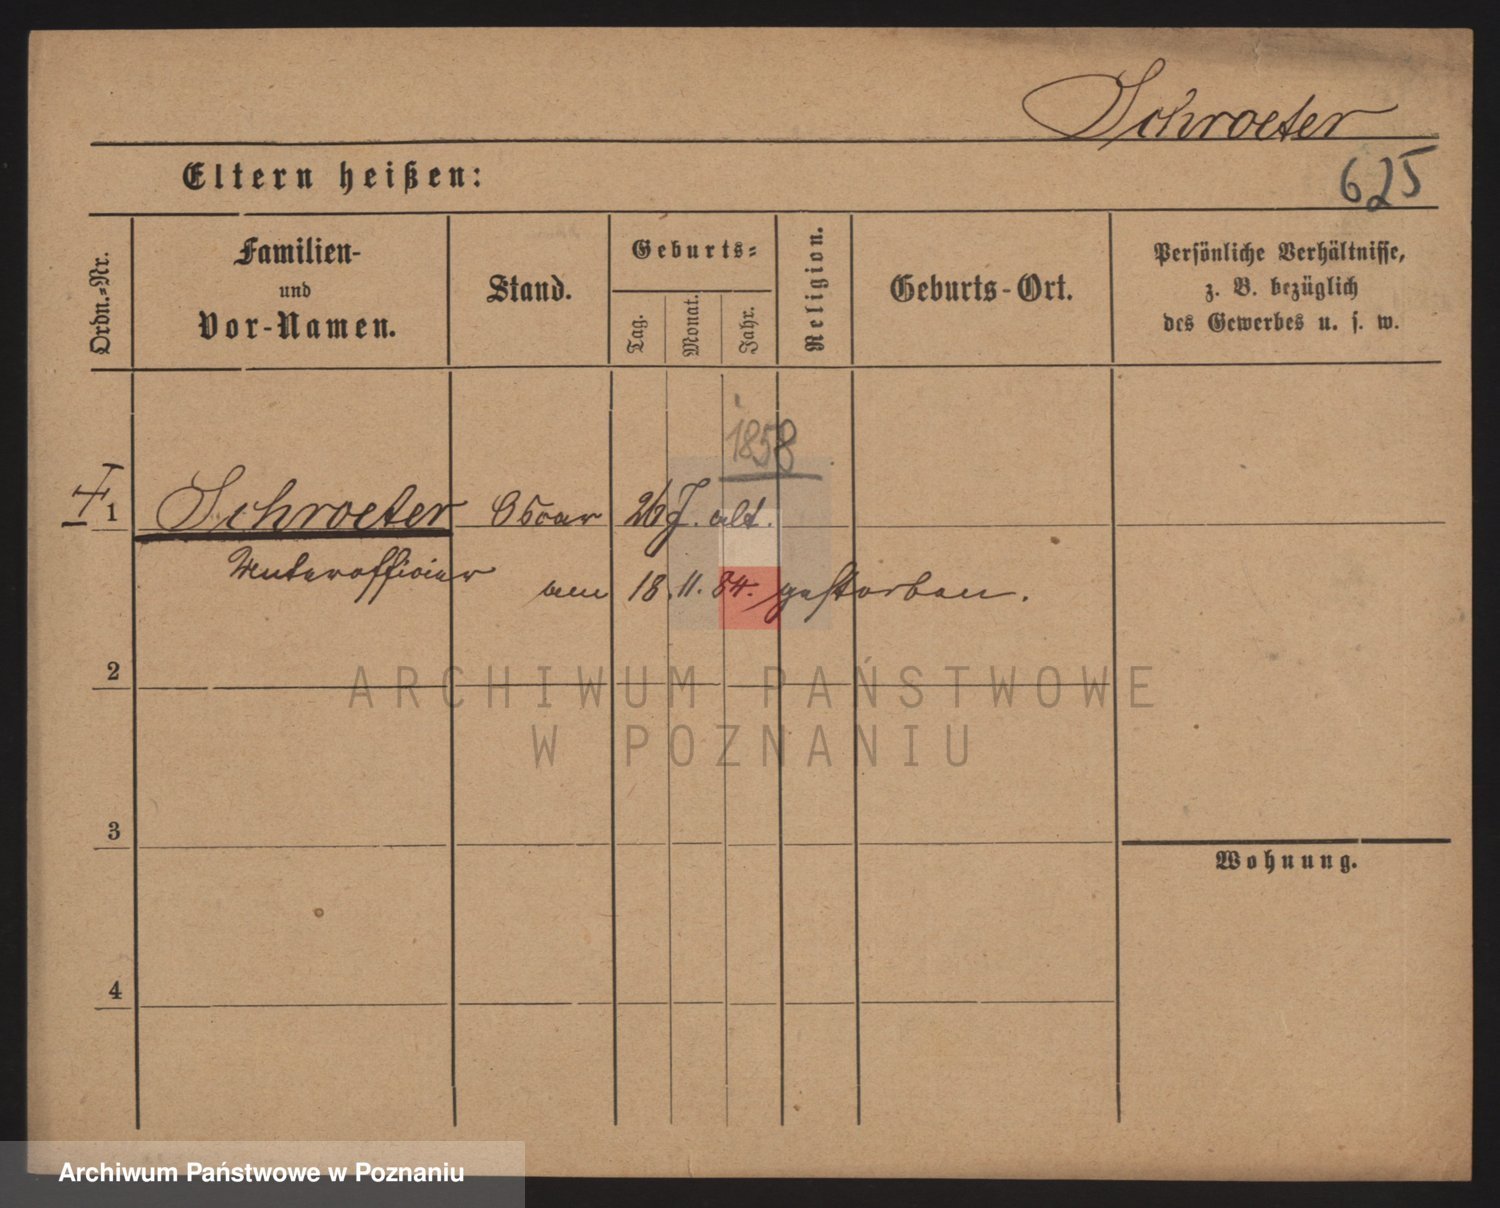 Schroeter
625
Eltern heißen:
Ordn.-Nr.
Familien-
und
Vor-Namen.
Stand.
Geburts-
Tag.
Monat.
Jahr.
Religion.
Geburts-Ort.
Persönliche Verhältnisse,
z. B. bezüglich
des Gewerbes u. s. w.
1858
1 Schroeter Oscar 26 J. alt.
Unterofficier am 18. 11. 84. gestorben.
2
ARCHIWUM PAŃSTWOWE
W POZNANIU
3
Wohnung.
4
Archiwum Państwowe w Poznaniu